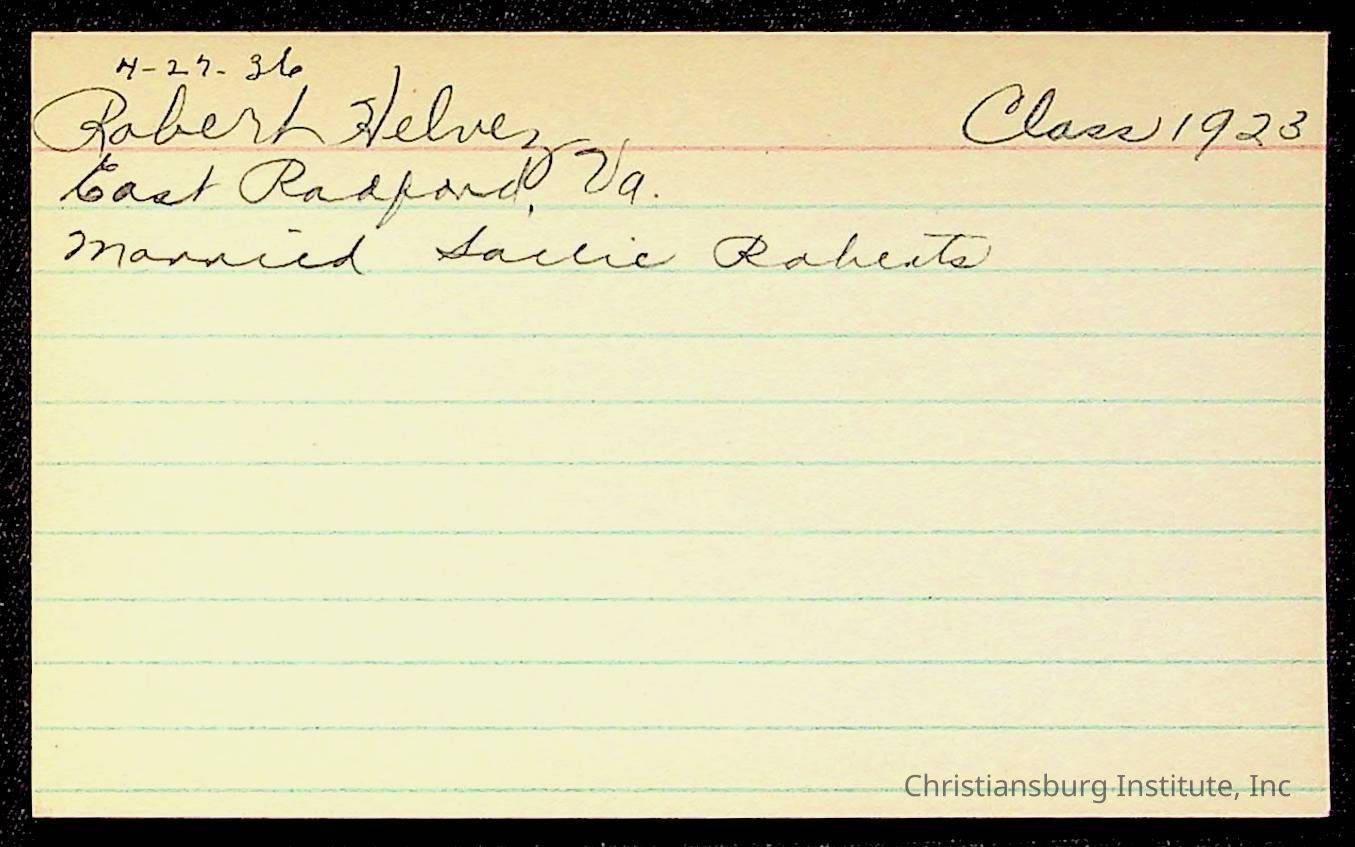 4-27-36
Robert Helvey Class 1923
East Radford, Va.
Married Sallie Roberts
Christiansburg Institute, Inc